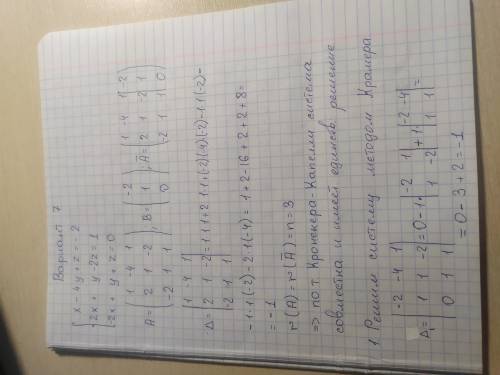 Вариант 7
{ x - 4y + z = -2
2x + y - 2z = 1
-2x + y + z = 0
A = ( 1 -4 1
2 1 -2
-2 1 1 ) ; B = ( -2
1
0 ) ; Ā = ( 1 -4 1 | -2
2 1 -2 | 1
-2 1 1 | 0 )
Δ = | 1 -4 1
2 1 -2
-2 1 1 | = 1·1·1 + 2·1·1 + (-2)(-4)(-2) - 1·1·(-2) -
- 1·1·(-2) - 2·1·(-4) = 1 + 2 - 16 + 2 + 2 + 8 =
= -1
r(A) = r(Ā) = n = 3
=> по т. Кронекера-Капелли система
совместна и имеет единств. решение
1. Решим систему методом Крамера
Δ₁ = | -2 -4 1
1 1 -2
0 1 1 | = 0 - 1· | -2 1
1 -2 | + 1 | -2 -4
1 1 | =
= 0 - 3 + 2 = -1